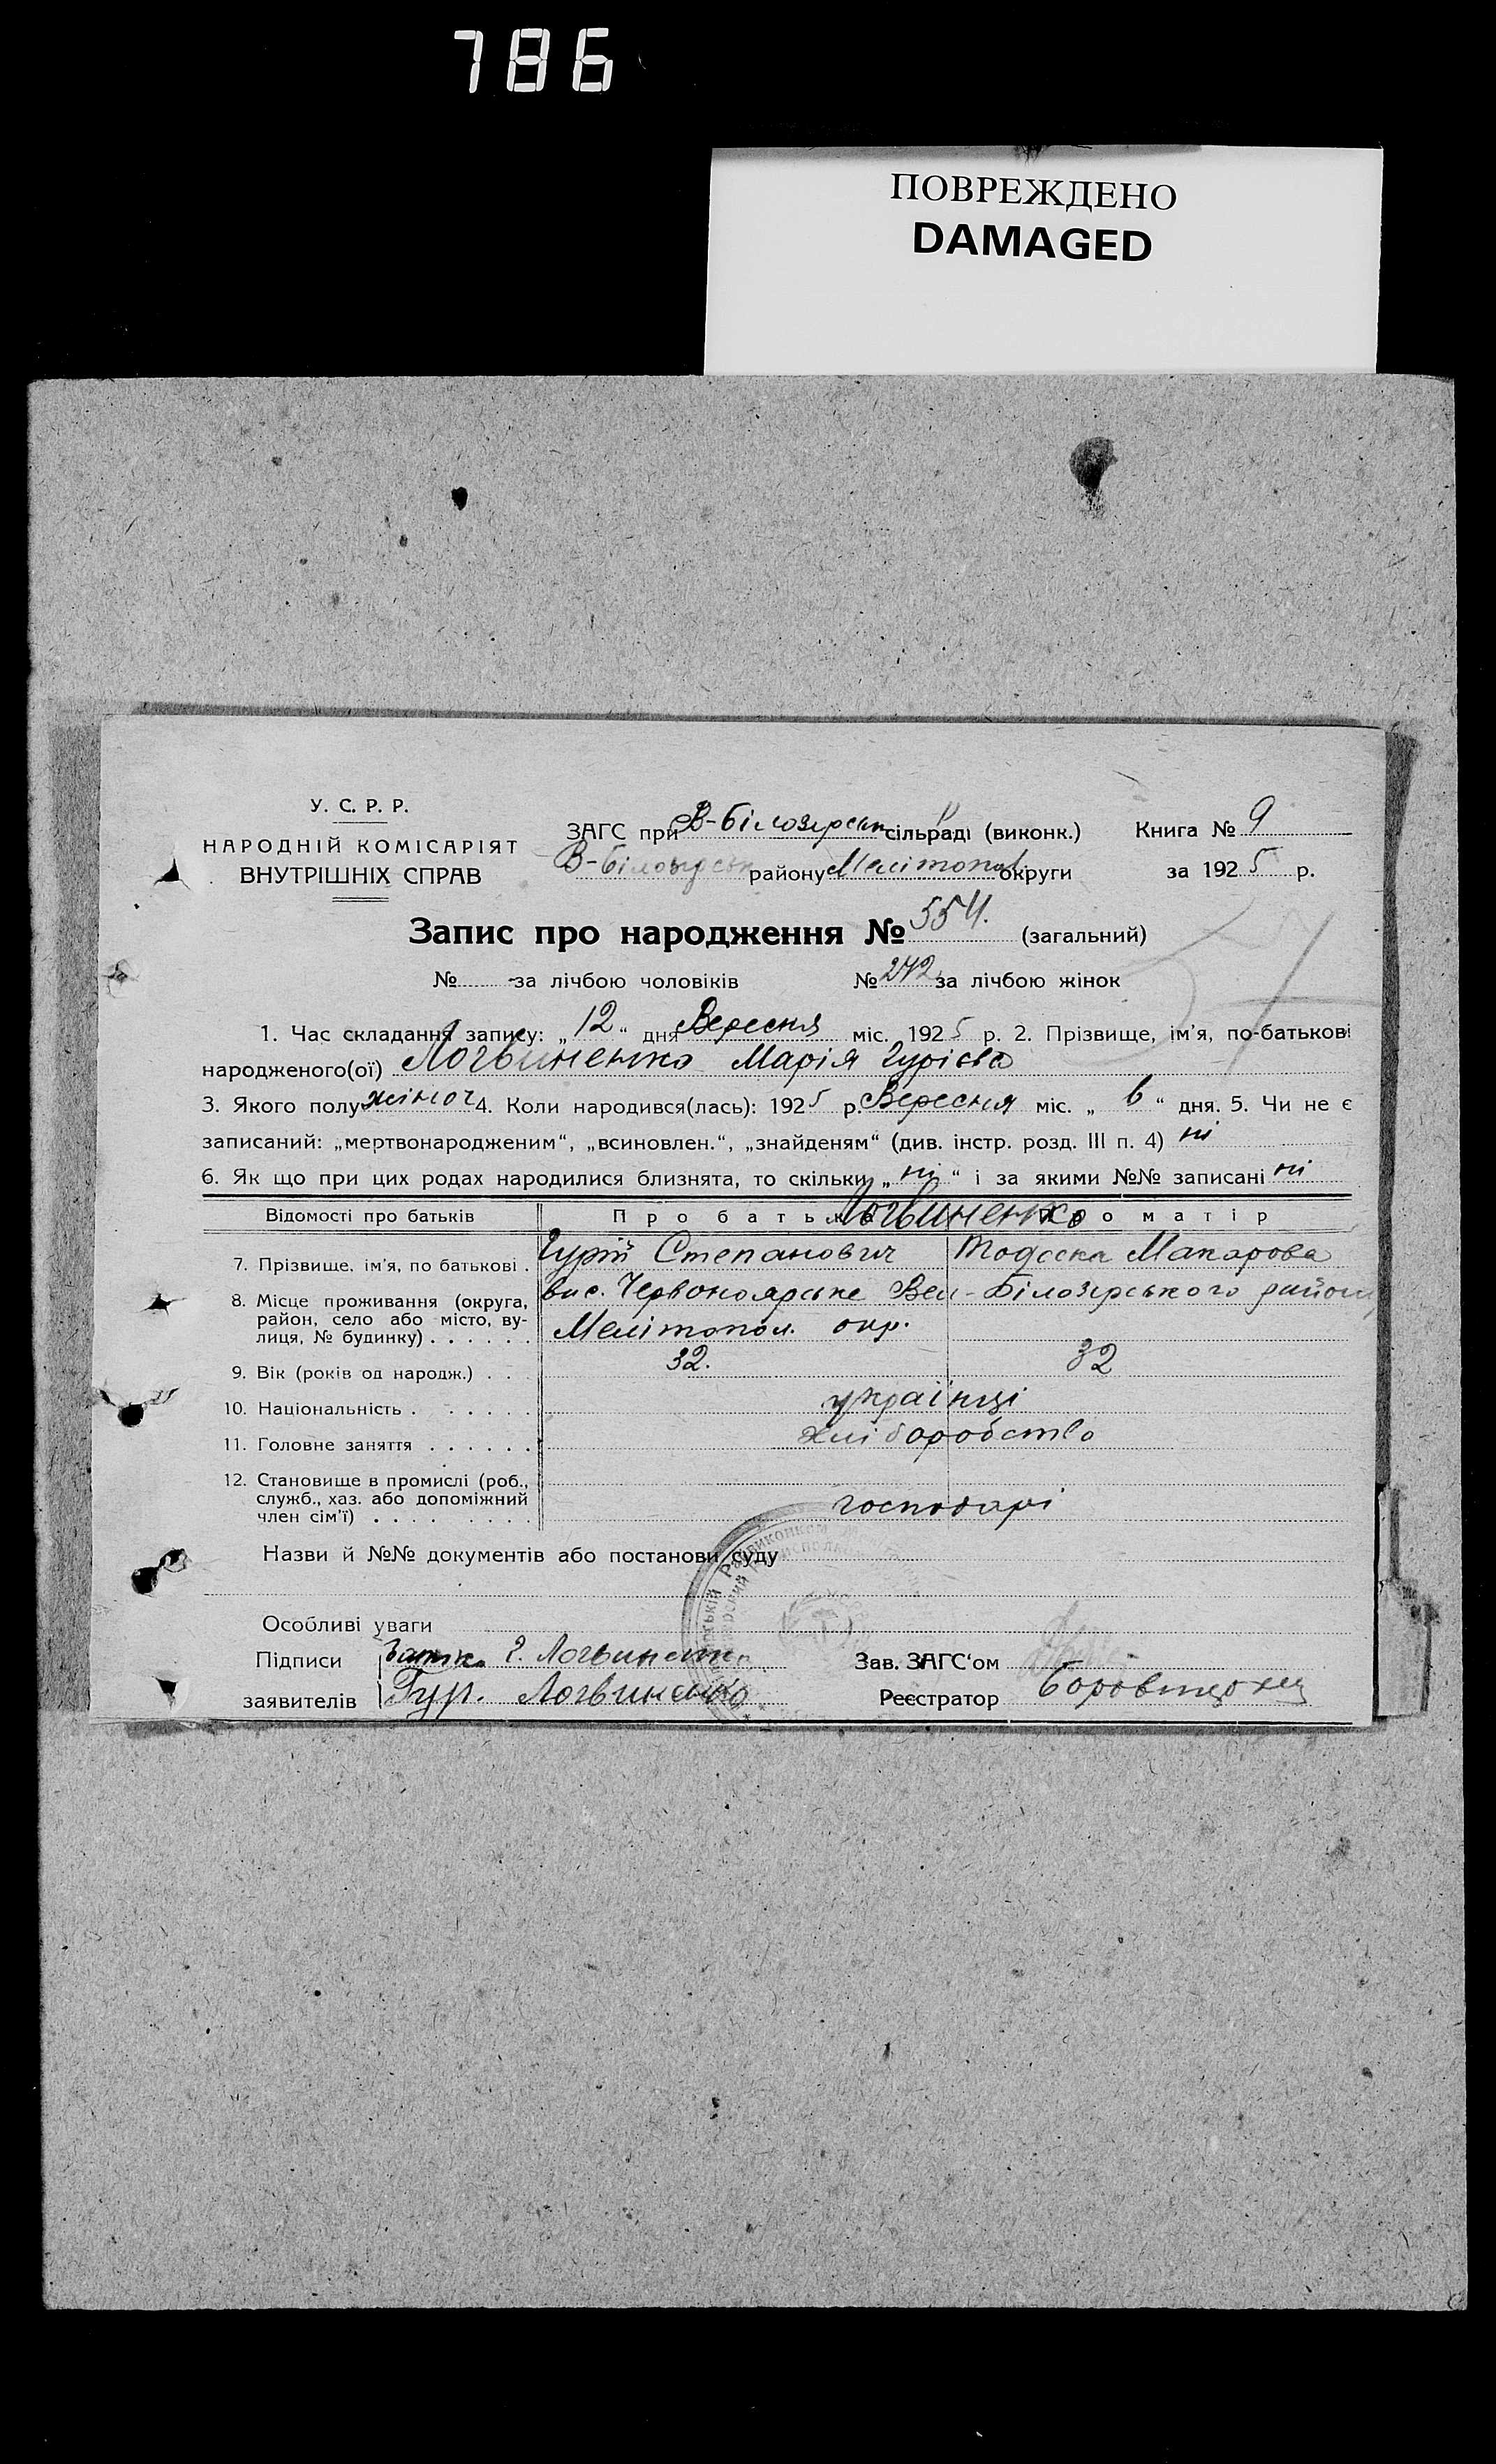 786
ПОВРЕЖДЕНО
DAMAGED
У. С. Р. Р.
НАРОДНІЙ КОМІСАРІЯТ
ВНУТРІШНІХ СПРАВ
ЗАГС при В-Білозерськ сільраді (виконк.)
В-Білозерськ району Мелітопол округи
Книга № 9
за 1925 р.
Запис про народження № 554. (загальний)
№ - за лічбою чоловіків № 242 за лічбою жінок
1. Час складання запису: „12“ дня Вересня міс. 1925 р. 2. Прізвище, ім’я, по-батькові
народженого(ої) Логвиненко Марія Гурієва
3. Якого полу жіноч 4. Коли народився(лась): 1925 р. Вересня міс. „6“ дня. 5. Чи не є
записаний: „мертвонародженим“, „всиновлен.“, „знайденям“ (див. інстр. розд. III п. 4) ні
6. Як що при цих родах народилися близнята, то скільки „ні“ і за якими №№ записані ні
Відомості про батьків Про батька Про матір
Логвиненко
7. Прізвище, ім’я, по батькові . Гурій Степанович Тодоска Макарова
8. Місце проживання (округа, вис. Червоноярське Вел-Білозерського району,
район, село або місто, ву-
лиця, № будинку) . . . . . . Мелітопол. окр.
9. Вік (років од народж.) . . . 32. 32
10. Національність . . . . . . українці
11. Головне заняття . . . . . . хліборобство
12. Становище в промислі (роб.,
служб., хаз. або допоміжний
член сім’ї) . . . . . . . . господарі
Назви й №№ документів або постанови суду
Особливі уваги
Підписи Батько Г. Логвиненко Зав. ЗАГС‘ом
заявителів Гур. Логвиненко Реєстратор